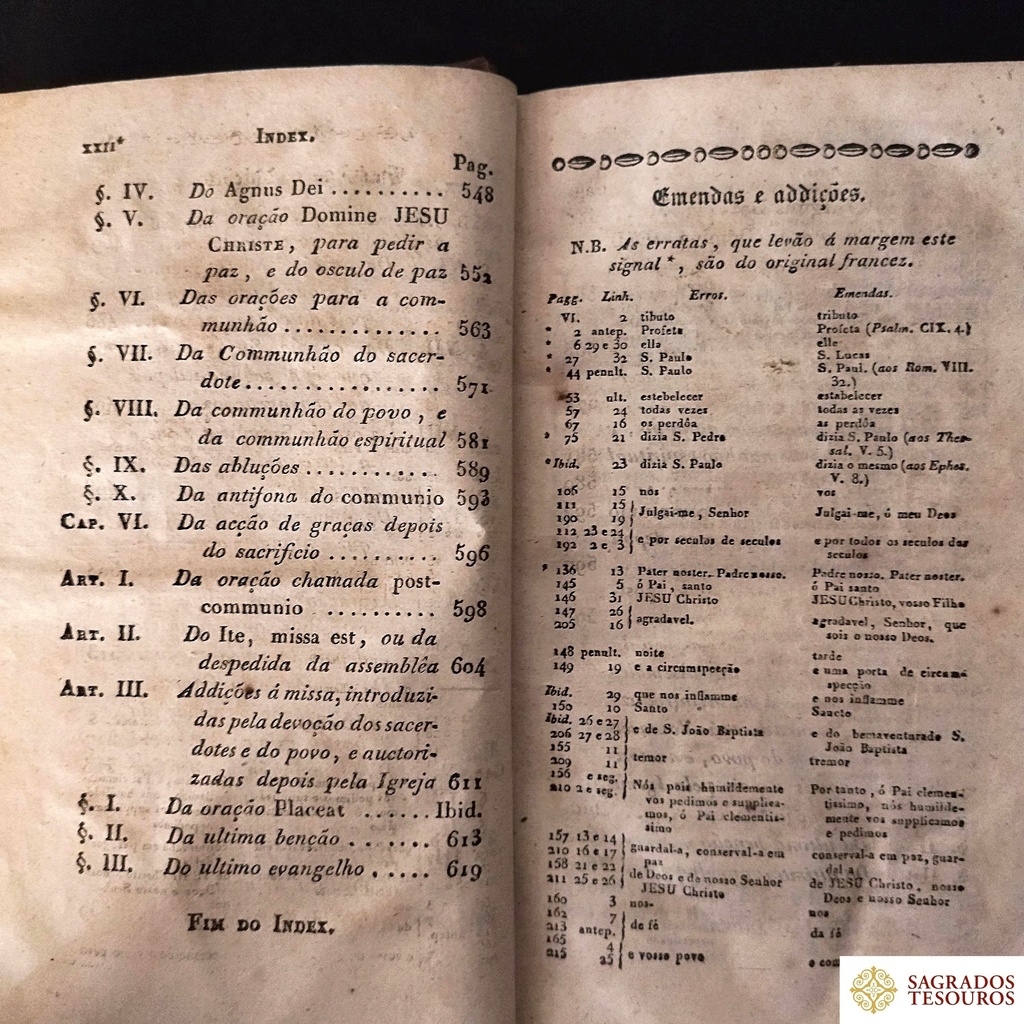 xxii*
INDEX.
Pag.
§. IV. Do Agnus Dei .......... 548
§. V. Da oração Domine JESU
CHRISTE, para pedir a
paz, e do osculo de paz 552
§. VI. Das orações para a com-
munhão .............. 563
§. VII. Da Communhão do sacer-
dote.................. 571
§. VIII. Da communhão do povo, e
da communhão espiritual 581
§. IX. Das abluções ............ 589
§. X. Da antifona do communio 593
CAP. VI. Da acção de graças depois
do sacrificio .......... 596
ART. I. Da oração chamada post-
communio .......... 598
ART. II. Do Ite, missa est, ou da
despedida da assemblêa 604
ART. III. Addições á missa, introduzi-
das pela devoção dos sacer-
dotes e do povo, e auctori-
zadas depois pela Igreja 611
§. I. Da oração Placeat ...... Ibid.
§. II. Da ultima benção ....... 613
§. III. Do ultimo evangelho ..... 619
FIM DO INDEX.
Emendas e addições.
N.B. As erratas, que levão á margem este
signal *, são do original francez.
Pagg. Linh. Erros. Emendas.
VI. 2 tibuto tributo
* 2 antep. Profeta Profeta (Psalm. CIX. 4.)
* 6 29 e 30 ella elle
* 27 32 S. Paulo S. Lucas
* 44 penult. S. Paulo S. Paul. (aos Rom. VIII.
32.)
53 ult. estebelecer estabelecer
57 24 todas vezes todas as vezes
67 16 os perdôa as perdôa
* 75 21 dizia S. Pedro dizia S. Paulo (aos Thes-
sal. V. 5.)
* Ibid. 23 dizia S. Paulo dizia o mesmo (aos Ephes.
V. 8.)
106 15 nós vos
111 15 } Julgai-me, Senhor Julgai-me, ó meu Deos
190 19
112 23 e 24 } e por seculos de seculos e por todos os seculos dos
192 2 e 3 seculos
* 136 13 Pater noster. Padre nosso. Padre nosso. Pater noster.
145 5 ó Pai, santo ó Pai santo
146 31 JESU Christo JESU Christo, vosso Filho
147 26 } agradavel. agradavel, Senhor, que
205 16 sois o nosso Deos.
148 penult. noite tarde
149 19 e a circumspecção e uma porta de circum-
specção
Ibid. 29 que nos inflamme e nos inflamme
150 10 Santo Sancto
Ibid. 26 e 27 } e de S. João Baptista e do bemaventurado S.
206 27 e 28 João Baptista
155 11 } temor tremor
209 11
156 e seg. } Nós pois humildemente Por tanto, ó Pai clemen-
210 2 e seg. vos pedimos e supplica- tissimo, nós humilde-
mos, ó Pai clementis- mente vos supplicamos
simo e pedimos
157 13 e 14 } guardal-a, conserval-a em conserval-a em paz, guar-
210 16 e 17 paz dal a
158 21 e 22 } de Deos e de nosso Senhor de JESU Christo, nosso
211 25 e 26 JESU Christo Deos e nosso Senhor
160 3 nos- nos
162 7 } de fé da fé
213 antep.
165 4 } e vosso povo e com
215 25
SAGRADOS
TESOUROS